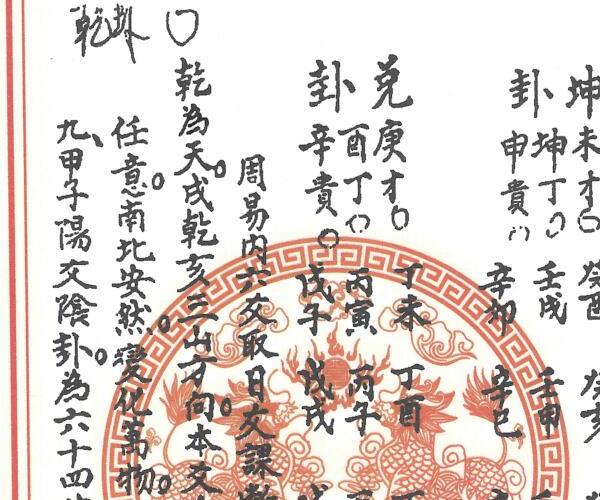 坤未才〇
卦坤丁〇
申貴〇
癸酉
壬戌
辛卯
癸亥
壬申
辛巳
兌庚才〇
酉丁〇
卦辛貴〇
丁未
丙寅
戊子
丁酉
丙子
戊戌
周易內六爻取日交課
〇
乾為天戌乾亥三山才向本爻
乾卦
任意南北安然變化萬物
九甲子陽交陰卦為六十四